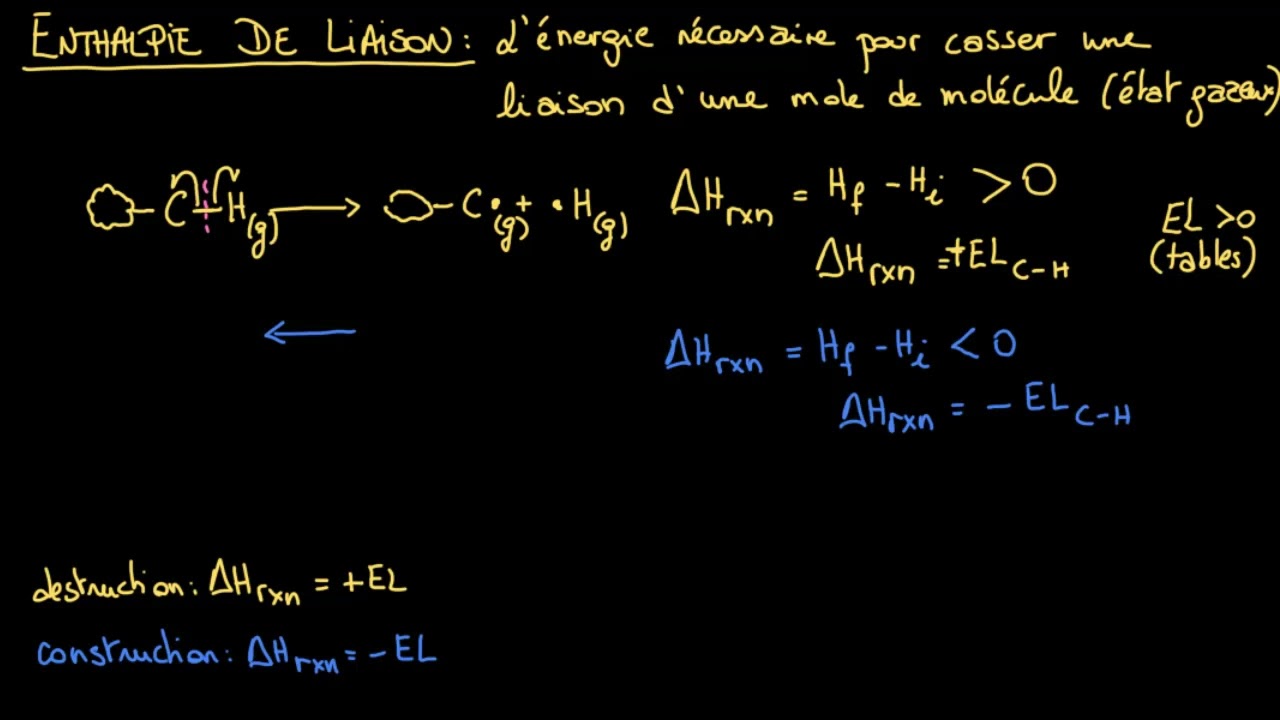 ENTHALPIE DE LIAISON: d'énergie nécessaire pour casser une
liaison d'une mole de molécule (état gazeux)
C-H(g) → C•(g) + •H(g)
ΔHrxn = Hf - Hi > 0
ΔHrxn = +EL C-H
EL >0
(tables)
←
ΔHrxn = Hf - Hi < 0
ΔHrxn = - EL C-H
destruction: ΔHrxn = +EL
construction: ΔHrxn = - EL